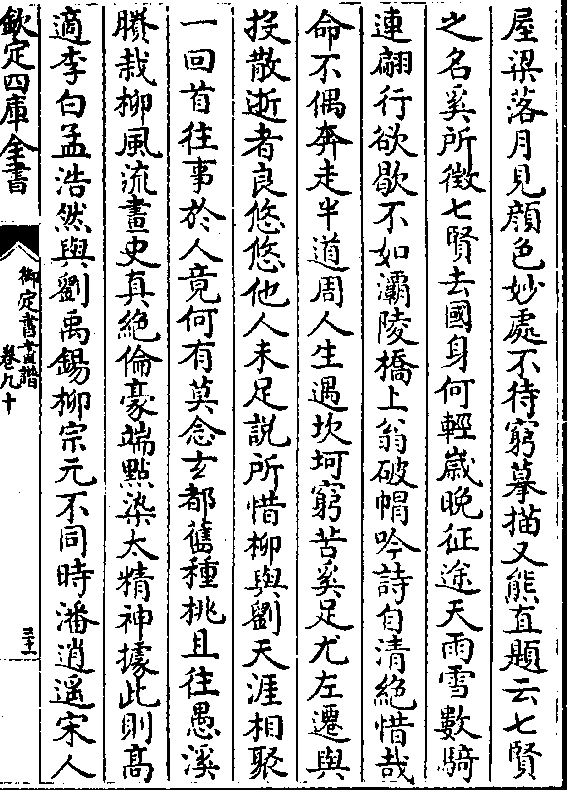 屋梁落月見顔色妙處不待窮摹描又熊直題云七賢
之名奚所徴七賢去國身何輕嵗晚征途天雨雪數騎
連翩行欲歇不如灞陵橋上翁破帽吟詩自清絶惜哉
命不偶奔走半道周人生遇坎坷窮苦奚足尤左遷與
投散逝者良悠悠他人未足説所惜柳與劉天涯相聚
一回首往事於人竟何有莫念玄都舊種桃且往愚溪
賸栽柳風流畫史真絶倫豪端點染太精神據此則髙
適李白孟浩然與劉禹錫柳宗元不同時潘逍遥宋人
欽定四庫全書
御定書畫譜
卷九十
三十一